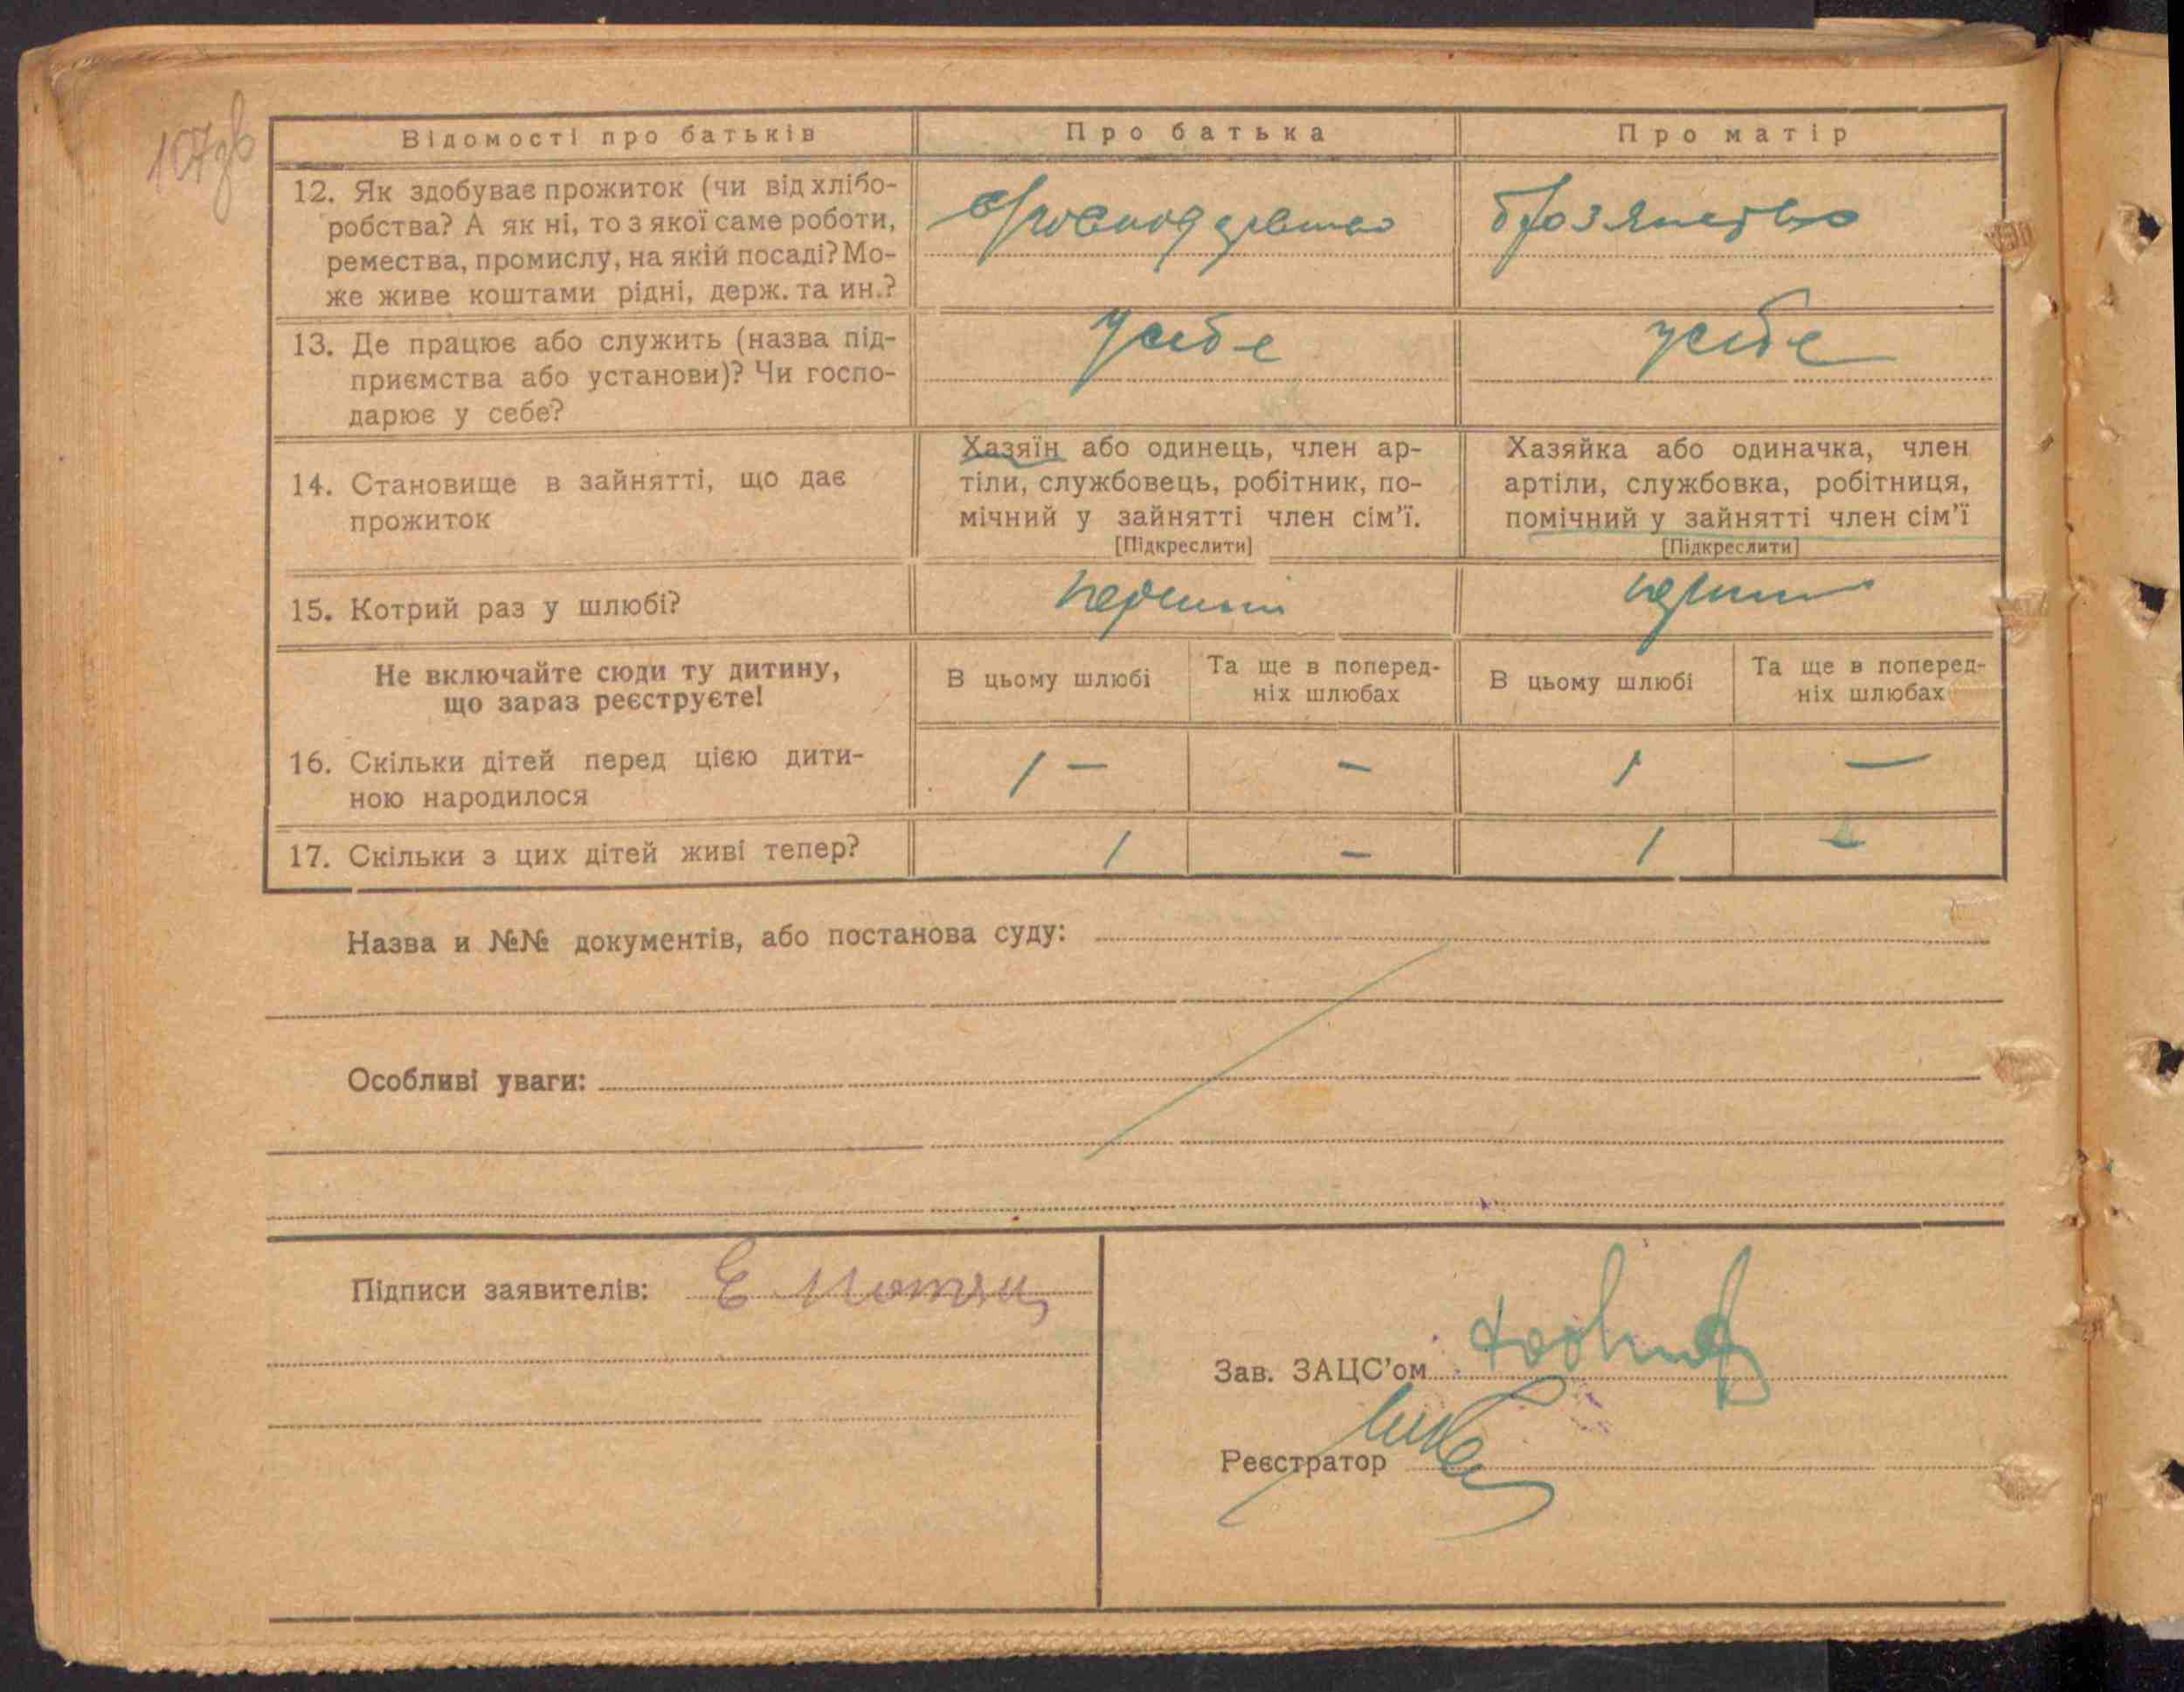 Відомості про батьків
Про батька
Про матір
12. Як здобуває прожиток (чи від хлібо-
робства? А як ні, то з якої саме роботи,
ремества, промислу, на якій посаді? Мо-
же живе коштами рідні, держ. та ин.?
13. Де працює або служить (назва під-
приємства або установи)? Чи госпо-
дарює у себе?
у себе
у себе
14. Становище в зайнятті, що дає
прожиток
Хазяїн або одинець, член ар-
тіли, службовець, робітник, по-
мічний у зайнятті член сім'ї.
[Підкреслити]
Хазяйка або одиначка, член
артіли, службовка, робітниця,
помічний у зайнятті член сім'ї
[Підкреслити]
15. Котрий раз у шлюбі?
перший
перший
Не включайте сюди ту дитину,
що зараз реєструєте!
В цьому шлюбі
Та ще в поперед-
ніх шлюбах
В цьому шлюбі
Та ще в поперед-
ніх шлюбах
16. Скільки дітей перед цією дити-
ною народилося
1 — — 1 —
17. Скільки з цих дітей живі тепер?
1 — 1 —
Назва и №№ документів, або постанова суду:
Особливі уваги:
Підписи заявителів:
Зав. ЗАЦС'ом
Реєстратор